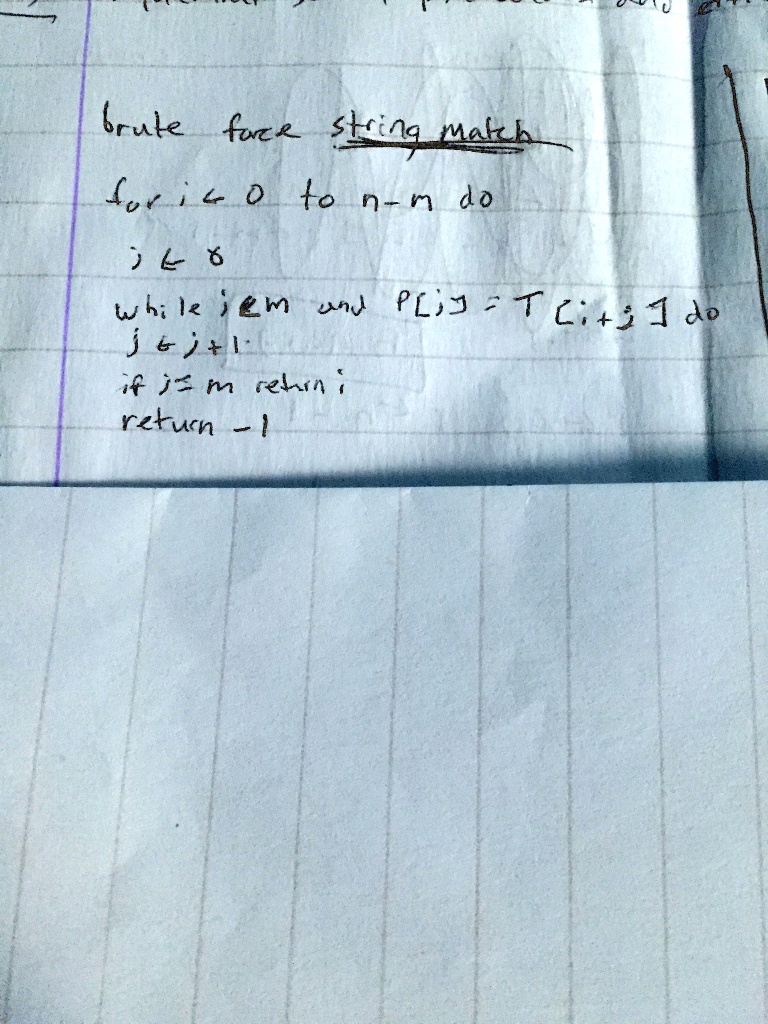 brute force string match
for i ← 0 to n-m do
j ← 0
while j < m and P[j] = T[i+j] do
j ← j+1
if j = m return i
return -1